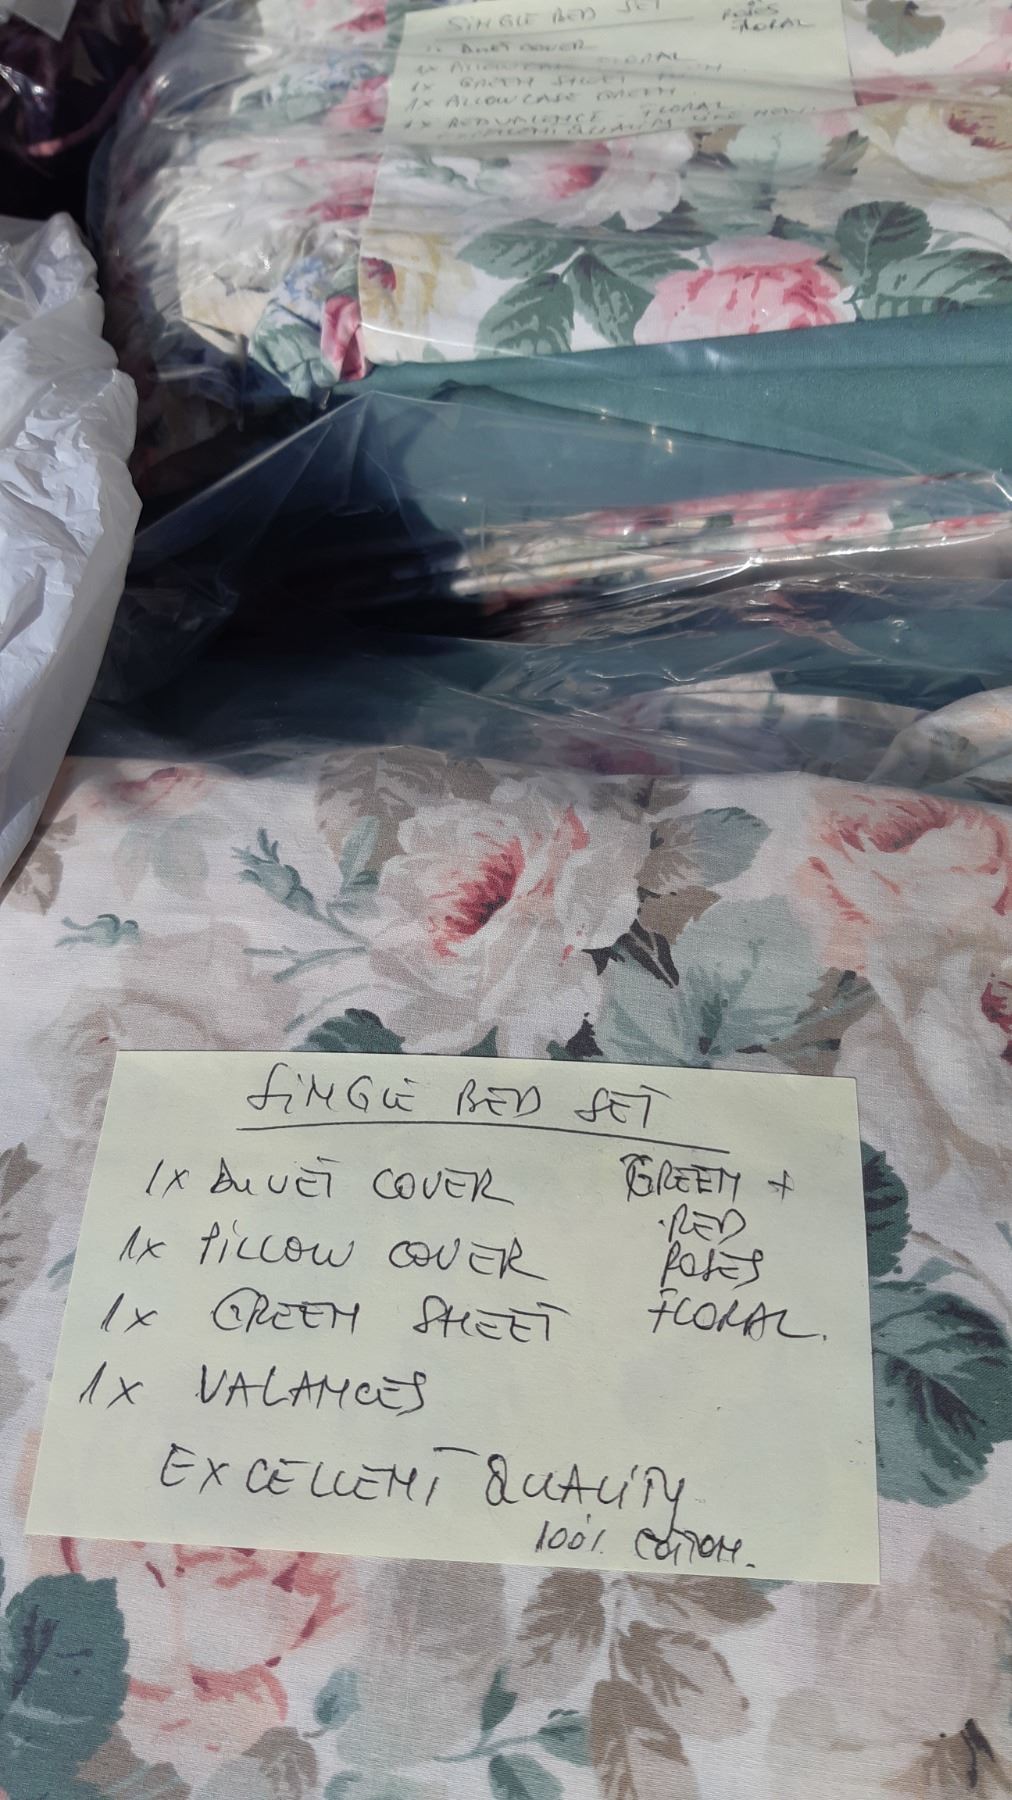 SINGLE BED SET
ROSES
FLORAL
1x DUVET COVER
1x FLORAL
1x GREEN SHEET
1x PILLOWCASE GREEN
1x BED VALENCE - FLORAL
EXCELLENT QUALITY LIKE NEW.
SINGLE BED SET
1x DUVET COVER GREEN +
RED
1x PILLOW COVER ROSES
1x GREEN SHEET FLORAL.
1x VALANCES
EXCELLENT QUALITY
100% COTTON.